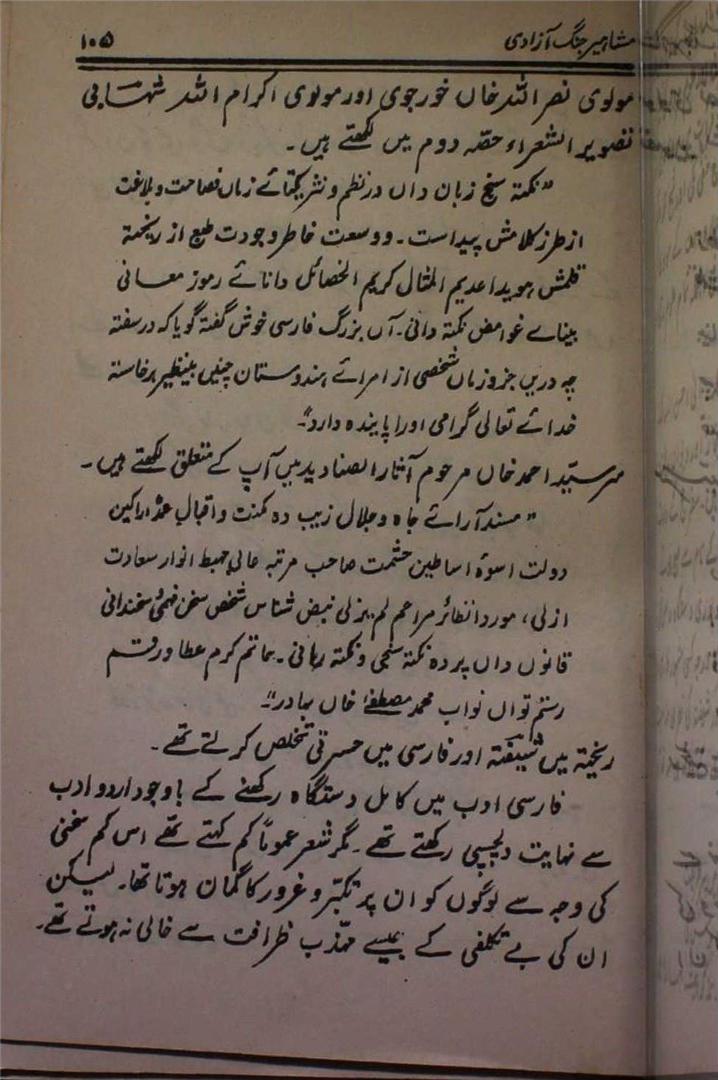 مشاہیر جنگ آزادی ۱۰۵
مولوی نصر اللہ خاں خورجوی اور مولوی اکرام اللہ شہابی
تصویر الشعراء حصہ دوم میں لکھتے ہیں۔
"نکتہ سنج زبان داں در نظم و نثر یکتائے زماں فصاحت و بلاغت
از طرز کلامش پیداست۔ و وسعت خاطر و جودت طبع از ریختۂ
قلمش ہویدا عدیم المثال کریم الخصائل دانائے رموز معانی
بینائے غوامض نکتہ دانی۔ آں بزرگ فارسی خوش گفتہ گویا کہ در سفتہ
چہ دریں جزو زماں شخصی از امرائے ہندوستان چنیں بینظیر برخاستہ
خدائے تعالی گرامی اورا پایندہ دارد"۔
سر سید احمد خاں مرحوم آثار الصنادید میں آپ کے متعلق لکھتے ہیں۔
"مسند آرائے جاہ و جلال زیب دہ مکنت و اقبال عمدۂ اراکین
دولت اسوۂ اساطین حشمت صاحب مرتبہ عالی مہبط انوار سعادت
ازلی، مورد انظائر مراحم لم یزلی نبض شناس شخص سخن فہمی و سخندانی
قانوں داں پردہ نکتہ سنجی و نکتہ رہانی۔ حاتم کرم عطا ورقم
رستم تواں نواب محمد مصطفےٰ خاں بہادر"۔
ریختہ میں شیفتہ اور فارسی میں حسرتی تخلص کرتے تھے۔
فارسی ادب میں کامل دستگاہ رکھنے کے باوجود اردو ادب
سے نہایت دلچسپی رکھتے تھے۔ مگر شعر عموماً کم کہتے تھے اس کم سخنی
کی وجہ سے لوگوں کو ان پر تکبر و غرور کا گمان ہوتا تھا۔ لیکن
ان کی بے تکلفی کے جلسے مہذب ظرافت سے خالی نہ ہوتے تھے۔